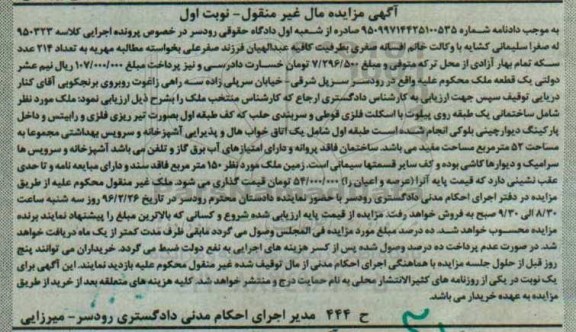 آگهی مزایده مال غیر منقول- نوبت اول
به موجب دادنامه شماره ۹۵۰۹۹۷۱۴۴۲۵۱۰۰۵۳۵ صادره از شعبه اول دادگاه حقوقی رودسر در خصوص پرونده اجرایی کلاسه ۹۵۰۳۲۳
له صغرا سلیمانی کشایه با وکالت خانم افسانه صفری بطرفیت کافیه عبدالهیان فرزند صفرعلی بخواسته مطالبه مهریه به تعداد ۲۱۴ عدد
سکه تمام بهار آزادی از محل ترکه متوفی و مبلغ ۷/۲۹۶/۵۰۰ تومان خسارت دادرسی و نیز پرداخت مبلغ ۱۰۷/۰۰۰/۰۰۰ ریال نیم عشر
دولتی یک قطعه ملک محکوم علیه واقع در رودسر- سرپل شرقی- خیابان سرپلی زاده سه راهی زاغوت روبروی برنجکوبی آقای کنار
دریایی توقیف سپس جهت ارزیابی به کارشناس دادگستری ارجاع که کارشناس منتخب ملک را بشرح ذیل ارزیابی نمود: ملک مورد نظر
شامل ساختمانی یک طبقه روی پیلوت با اسکلت فلزی قوطی و سربندی حلب که کف طبقه اول بصورت تیر ریزی فلزی و رابیتس و داخل
پارکینگ دیوارچینی بلوکی انجام شده است طبقه اول شامل یک اتاق خواب هال و پذیرایی آشپزخانه و سرویس بهداشتی مجموعا به
مساحت ۵۲ مترمربع مساحت مفید می باشد. ساختمان فاقد پروانه و دارای امتیازهای آب برق گاز و تلفن می باشد آشپزخانه و سرویس ها
سرامیک و دیوارها کاشی بوده و کف سایر قسمتها سیمانی است. زمین ملک مورد نظر ۱۵۰ متر مربع فاقد سند و دارای مبایعه نامه و تا حدی
عقب نشینی دارد که قیمت پایه آنرا (عرصه و اعیان را) ۵۴/۰۰۰/۰۰۰ تومان قیمت گذاری می شود. ملک غیر منقول محکوم علیه از طریق
مزایده در دفتر اجرای احکام مدنی دادگستری رودسر با حضور نماینده دادستان محترم رودسر در تاریخ ۹۶/۲/۲۶ روز سه شنبه ساعت
۸/۳۰ الی ۹/۳۰ صبح به فروش خواهد رفت. مزایده از قیمت پایه ارزیابی شده شروع و کسانی که بالاترین مبلغ را پیشنهاد نمایند برنده
مزایده محسوب خواهد شد. ده درصد مبلغ مورد مزایده فی المجلس وصول می گردد مابقی ظرف مدت کمتر از یک ماه دریافت خواهد
شد. در صورت عدم پرداخت ده درصد وصول شده پس از کسر هزینه های اجرایی به نفع دولت ضبط می گردد. خریداران می توانند پنج
روز قبل از حلول جلسه مزایده با هماهنگی اجرای احکام مدنی از مال توقیف شده غیر منقول محکوم علیه بازدید نمایند. این آگهی برای
یک نوبت در یکی از روزنامه های کثیرالانتشار محلی به نام حمایت درج و منتشر خواهد شد. کلیه هزینه های متعلقه بعد از خرید از طریق
مزایده به عهده خریدار می باشد.
ح ۴۴۴ مدیر اجرای احکام مدنی دادگستری رودسر- میرزایی